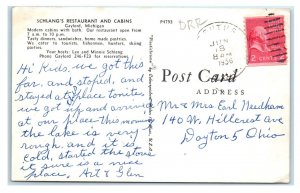 SCHLANG'S RESTAURANT AND CABINS
Gaylord, Michigan
Modern cabins with bath. Our restaurant open from
7 a.m. to 10 p.m.
Tasty dinners, sandwiches, home made pastries.
We cater to tourists, fishermen, hunters, skiing
parties.
Your hosts: Leo and Minnie Schlang
Phone Gaylord 246-F23 for reservations.
P4703
DRP
JUN
8 PM
1956
2 CENTS 2
Hi Kids, we got this
far, and stopped, and
stayed at place tonite
we got up and arrived
at our place this morning
the lake is very
rough, and it is
cold, started the stove
it sure is a nice
place, Art & Glen
Post Card
ADDRESS
Mr & Mrs Earl Needham
140 W. Hillcrest ave
Dayton 5 Ohio